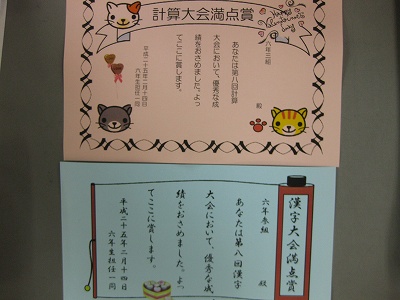 計算大会満点賞
Happy Valentine's Day
六年三組
殿
あなたは第八回計算
大会において、優秀な成
績をおさめました。よっ
てここに賞します。
平成二十五年二月十四日
六年生担任一同
漢字大会満点賞
六年参組
殿
あなたは第八回漢字
大会において、優秀な成
績をおさめました。よっ
てここに賞します。
平成二十五年二月十四日
六年生担任一同